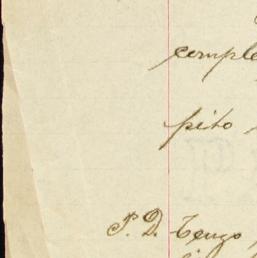 comple
pito
P. D. Tengo